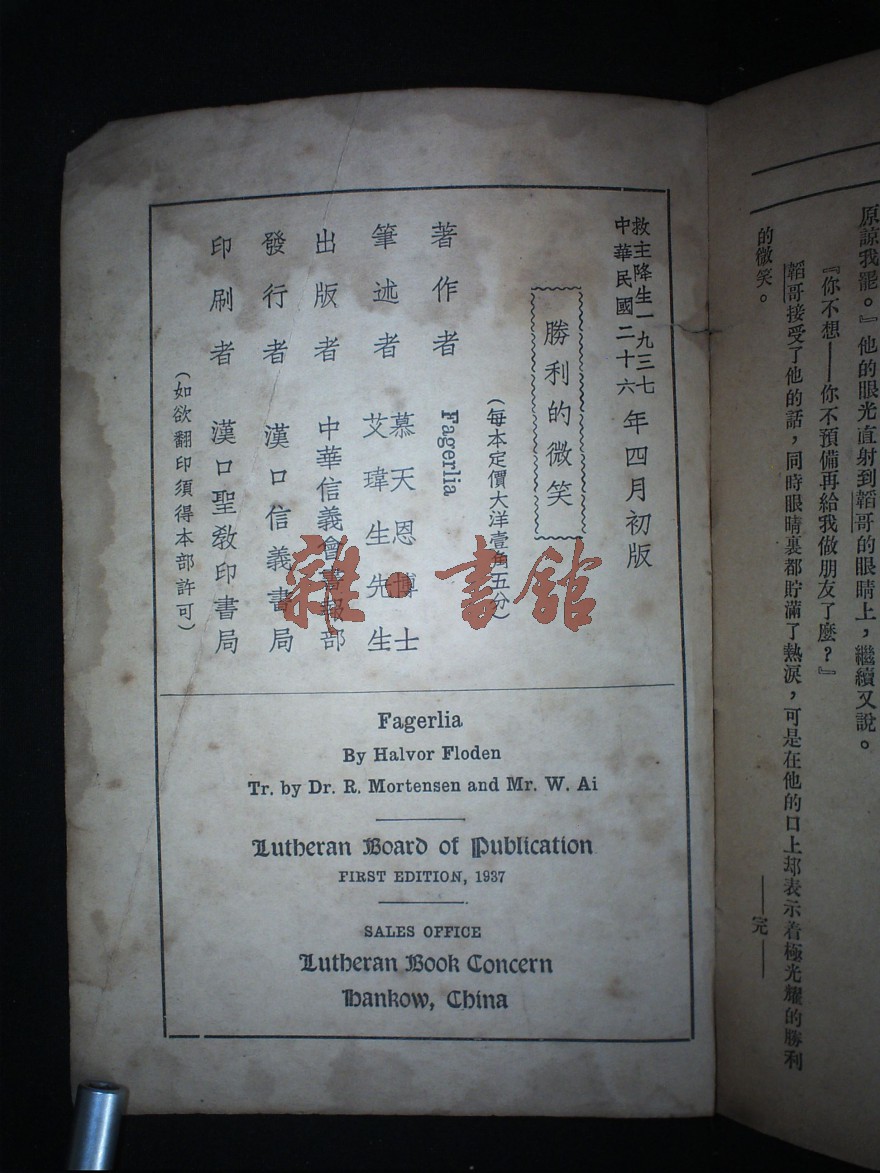 原諒我罷。』他的眼光直射到韜哥的眼睛上，繼續又說。
『你不想——你不預備再給我做朋友了麼？』
韜哥接受了他的話，同時眼睛裏都貯滿了熱淚，可是在他的口上却表示着極光耀的勝利
的微笑。
——完——
救主降生一九三七
中華民國二十六
年四月初版
勝利的微笑
（每本定價大洋壹角五分）
著作者 Fagerlia
筆述者 慕天恩博士
艾瑋生先生
出版者 中華信義會書報部
發行者 漢口信義書局
印刷者 漢口聖教印書局
（如欲翻印須得本部許可）
雜·書館
Fagerlia
By Halvor Floden
Tr. by Dr. R. Mortensen and Mr. W. Ai
Lutheran Board of Publication
FIRST EDITION, 1937
SALES OFFICE
Lutheran Book Concern
Hankow, China